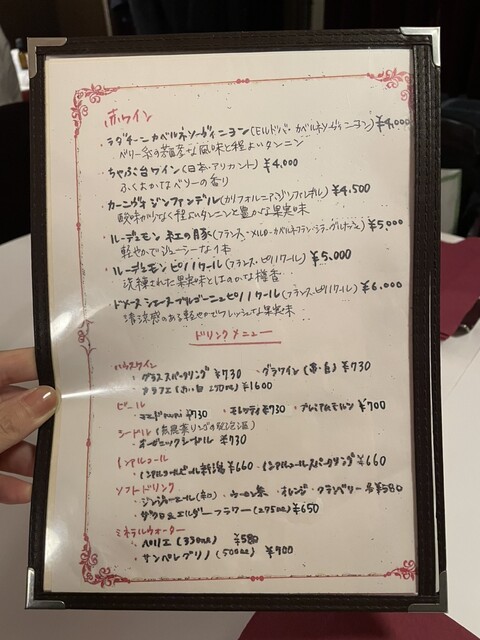 赤ワイン
・ラダチーニ カベルネソーヴィニヨン(モルドバ・カベルネソーヴィニヨン) ¥4,000
ベリー系の濃厚な風味と程よいタンニン
・ちゃぶ台ワイン(日本・アリカント) ¥4,000
ふくよかなベリーの香り
・カーニヴォ ジンファンデル(カリフォルニア・ジンファンデル) ¥4,500
酸味が少なく程よいタンニンと豊かな果実味
・ルーデュモン 紅の豚(フランス・メルロ・カベルネフラン・シラー・グルナッシュ) ¥5,000
軽やかでジューシーな1本
・ルーデュモン ピノノワール(フランス・ピノノワール) ¥5,000
洗練された果実味とほのかな樽香
・ドメーヌ シェーヌ ブルゴーニュピノノワール(フランス・ピノノワール) ¥6,000
清涼感のある軽やかでフレッシュな果実味
ドリンクメニュー
ハウスワイン
・グラススパークリング ¥730 ・グラスワイン(赤・白) ¥730
・デカンタ(赤・白 270ml) ¥1600
ビール
¥730 ・モレッティ ¥730 ・プレミアムモルツ ¥700
シードル(無農薬リンゴの発泡酒)
・オーガニックシードル ¥730
ノンアルコール
・ノンアルコールビール ¥660 ・ノンアルコールスパークリング ¥660
ソフトドリンク
・ジンジャーエール(辛口) ・ウーロン茶 ・オレンジ ・クランベリー 各¥580
・ザクロ&エルダーフラワー(275ml) ¥650
ミネラルウォーター
・ペリエ(330ml) ¥580
・サンペレグリノ(500ml) ¥700